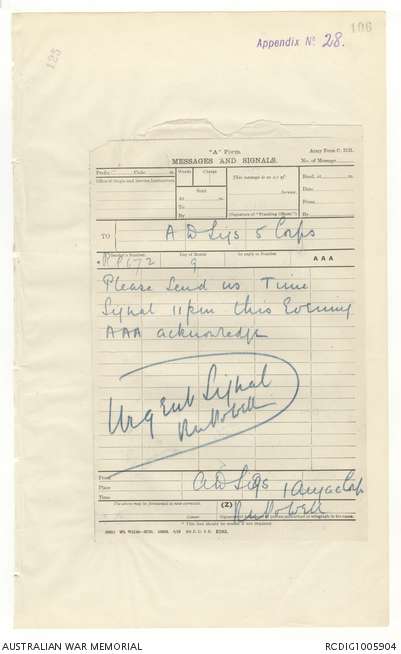 106
125
Appendix No 28.
"A" Form
Army Form C. 2121.
MESSAGES AND SIGNALS.
No. of Message
Prefix Code m.
Words Charge
This message is on a/c of:
Recd. at m.
Office of Origin and Service Instructions
Sent
Date
At m.
Service.
From
To
By
(Signature of "Franking Officer")
By
TO
A D Sigs 5 Corps
Sender's Number
Day of Month
In reply to Number
AAA
9
Please Send us Time
Signal 11pm this Evening
AAA acknowledge
Urgent Signal
From
Place
Time
A D Sigs 1 Anzac Corps
The above may be forwarded as now corrected.
(Z)
Censor.
* This line should be erased if not required.
AUSTRALIAN WAR MEMORIAL
RCDIG1005904